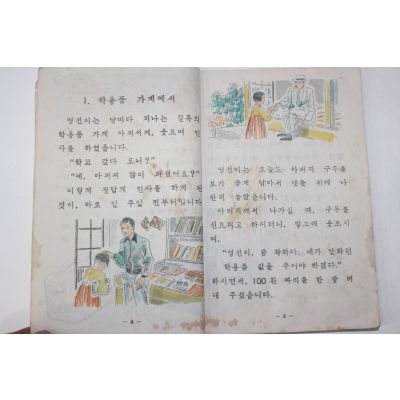 1. 학용품 가게에서
영선이는 날마다 지나는 길목의
학용품 가게 아저씨께, 웃으며 인
사를 하였습니다.
"학교 갔다 오니?"
"예, 아저씨 많이 파셨어요?"
이렇게 정답게 인사를 하게 된
것이, 바로 일 주일 전부터입니다.
- 4 -
영선이는 오늘도 아버지 구두를
보기 좋게 닦아서 댓돌 위에 나
란히 놓았습니다.
아버지께서 나가실 때, 구두를
신으려고 하시더니, 빙그레 웃으시
며,
"영선이, 참 착하다. 네가 말하던
학용품 값을 주어야 하겠다."
하시면서, 100 원 짜리를 한 장 꺼
내 주셨습니다.
- 5 -